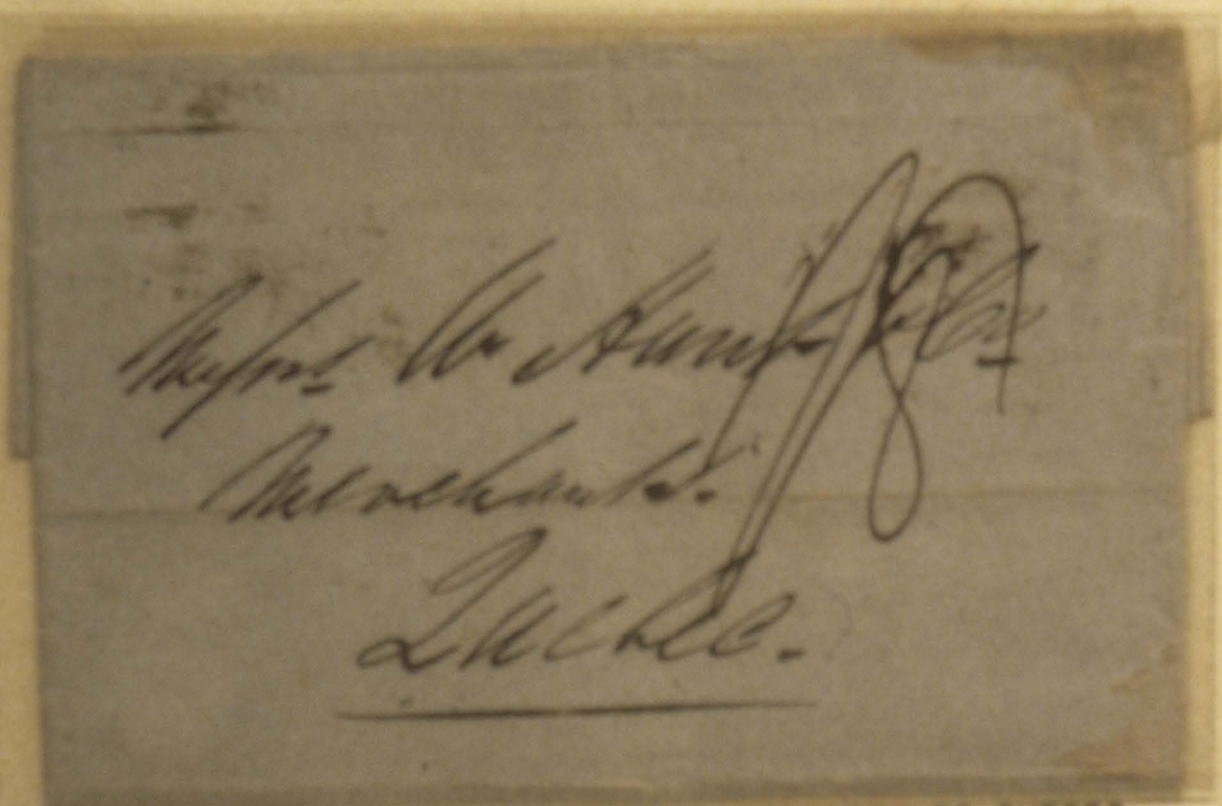 Messrs W. Hunt & Co
Merchants.
Quebec.